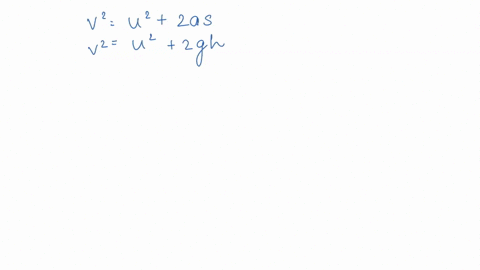 v² = u² + 2as
v² = u² + 2gh